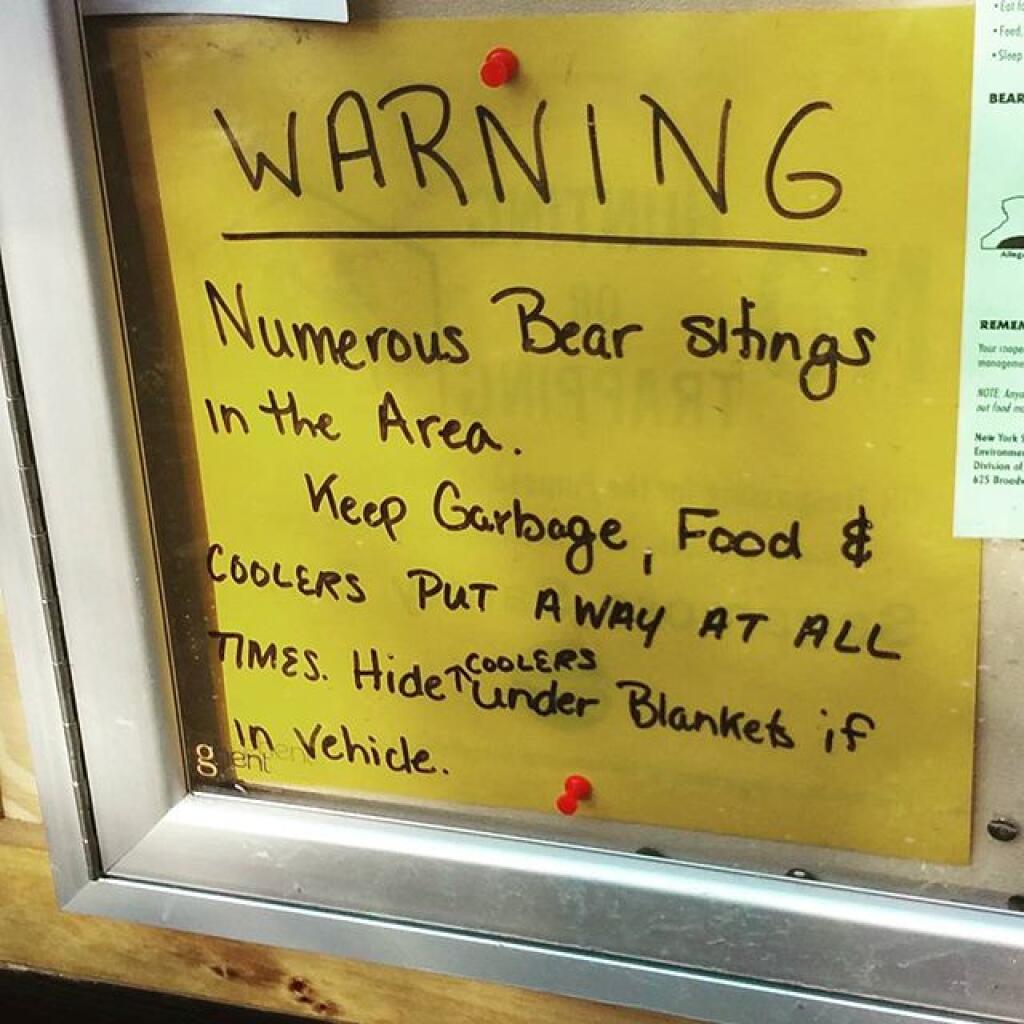 WARNING
Numerous Bear sitings
in the Area.
Keep Garbage, Food &
COOLERS PUT AWAY AT ALL
TIMES. Hide ↑COOLERS under Blankets if
in vehicle.
g ent
HUNTING
OR
TRAPPING
• Eat
• Feed,
• Sleep
BEAR
REMEM
Your
manageme
NOTE: Anyo
out food
New York S
Environmen
Division of
625 Broadw